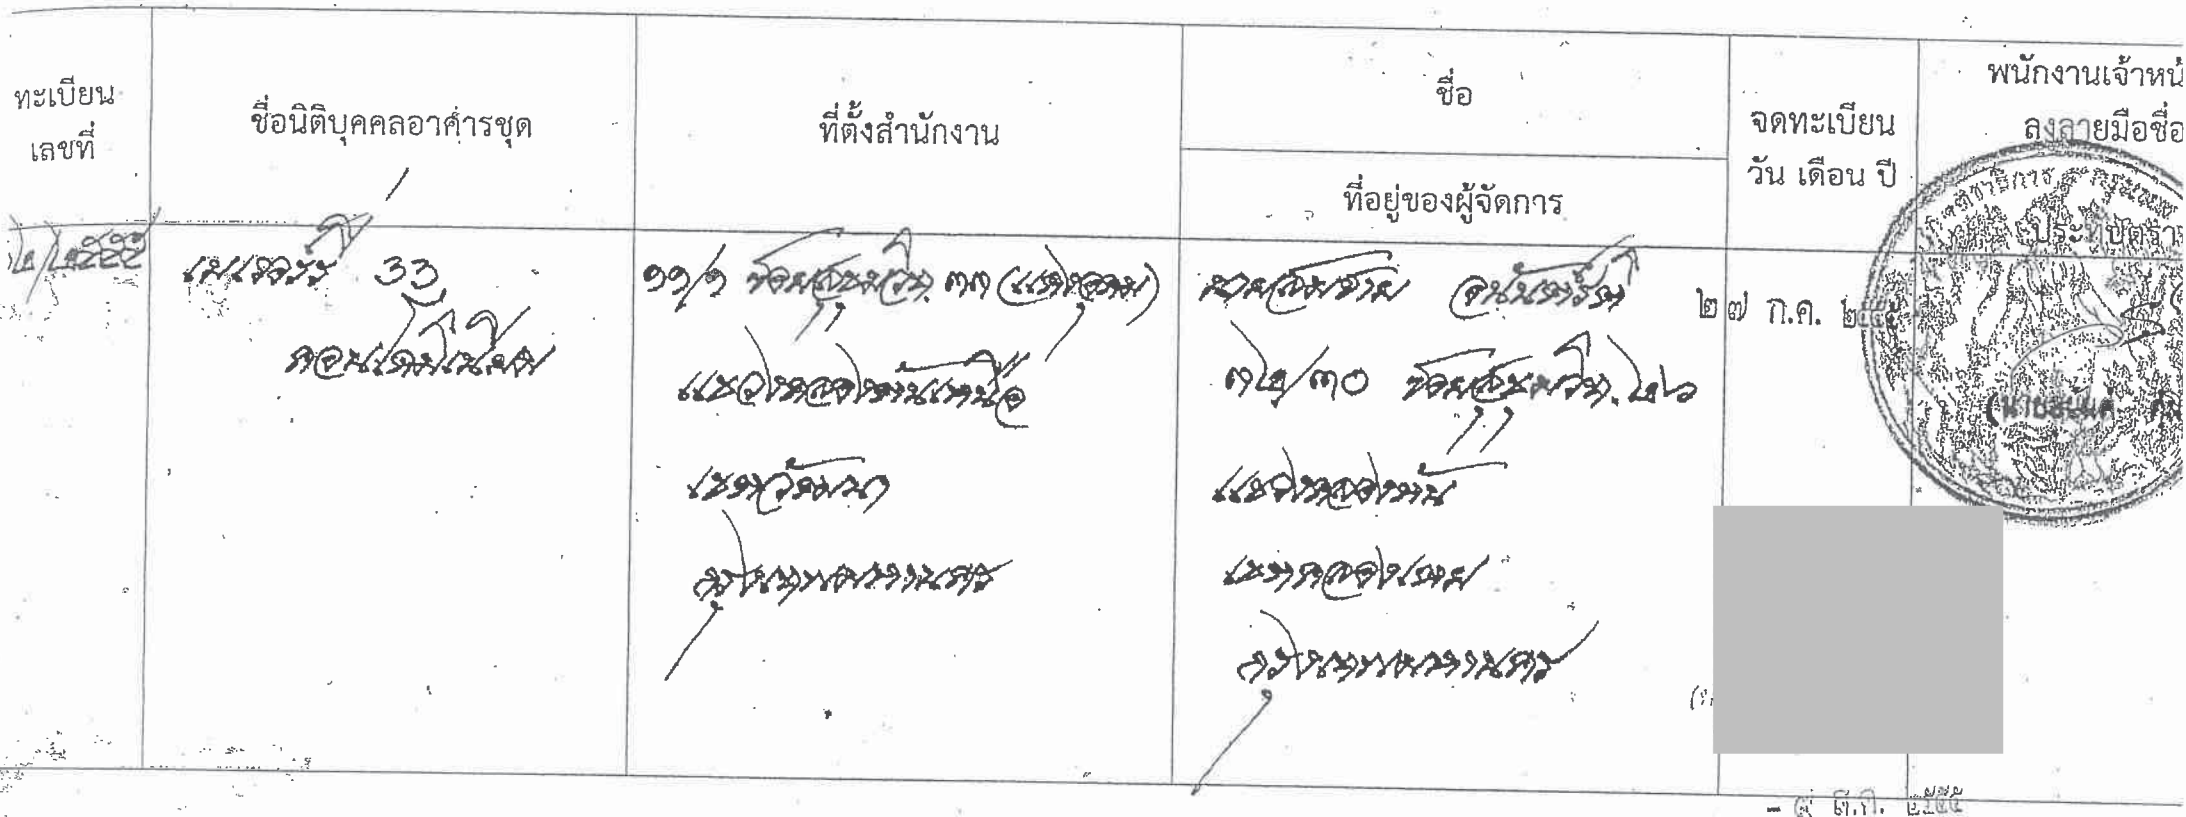 ทะเบียน
เลขที่
ชื่อนิติบุคคลอาคารชุด
ที่ตั้งสำนักงาน
ชื่อ
ที่อยู่ของผู้จัดการ
จดทะเบียน
วัน เดือน ปี
พนักงานเจ้าหน้
ลงลายมือชื่อ
๒/๒๕๕๕
เมเจอร์ 33
คอนโดมิเนียม
๑๑/๑ ซอยสุขุมวิท ๓๓ (แดงอุดม)
แขวงคลองตันเหนือ
เขตวัฒนา
กรุงเทพมหานคร
นายสมชาย
๓๒/๓๐ ซอยสุขุมวิท ๒๖
แขวงคลองตัน
เขตคลองเตย
กรุงเทพมหานคร
๒๗ ก.ค. ๒๕๕๕